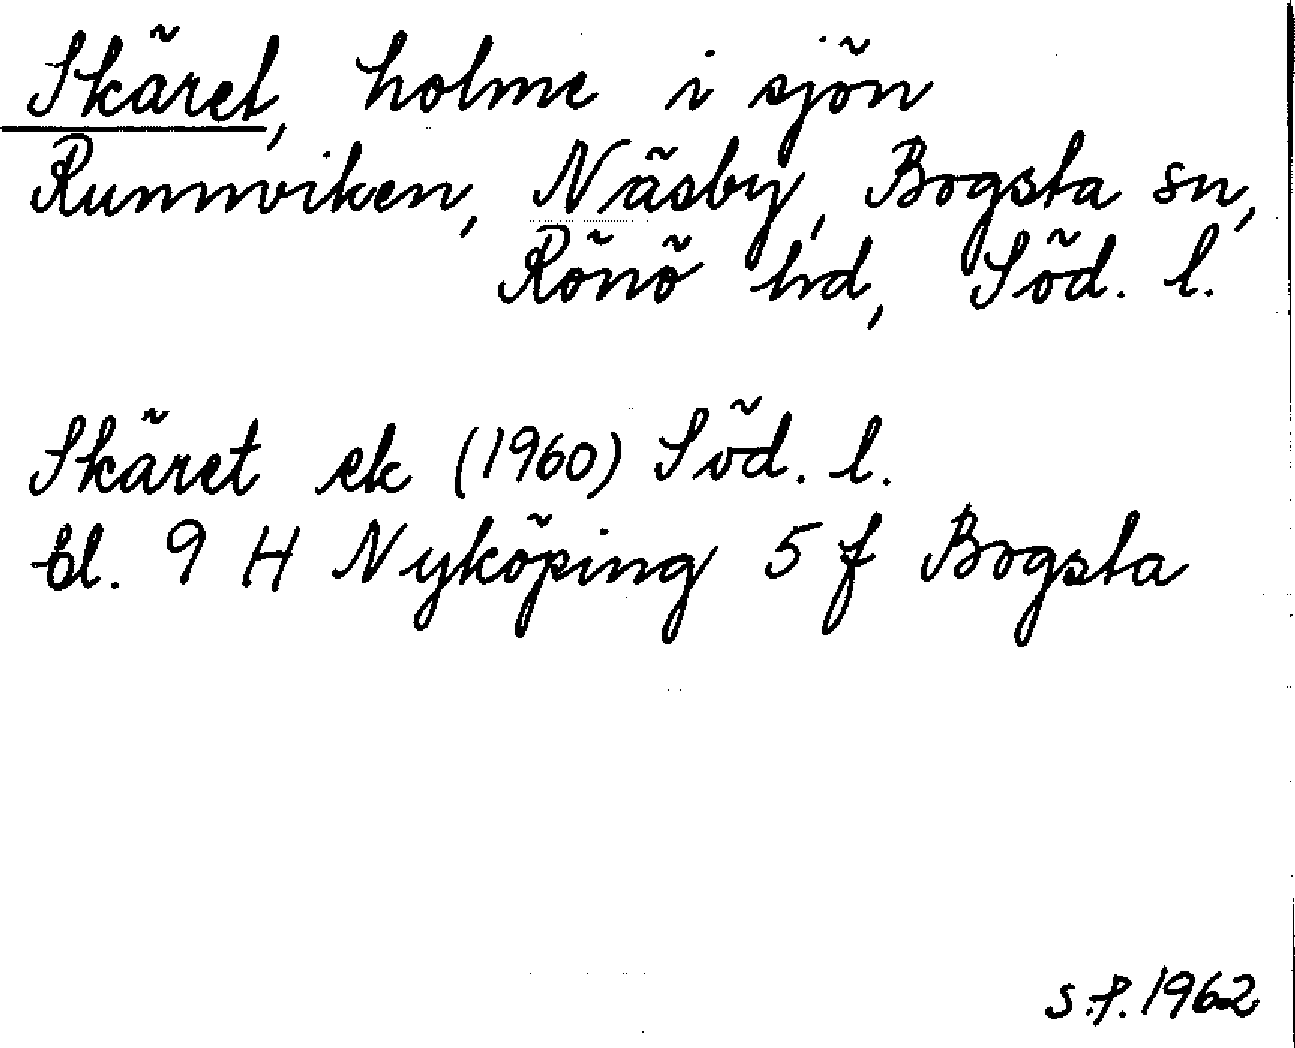 Skäret, holme i sjön
Runnviken, Näsby, Bogsta sn,
Rönö hd, Söd. l.
Skäret ek (1960) Söd. l.
bl. 9 H Nyköping 5 f Bogsta
S.P. 1962